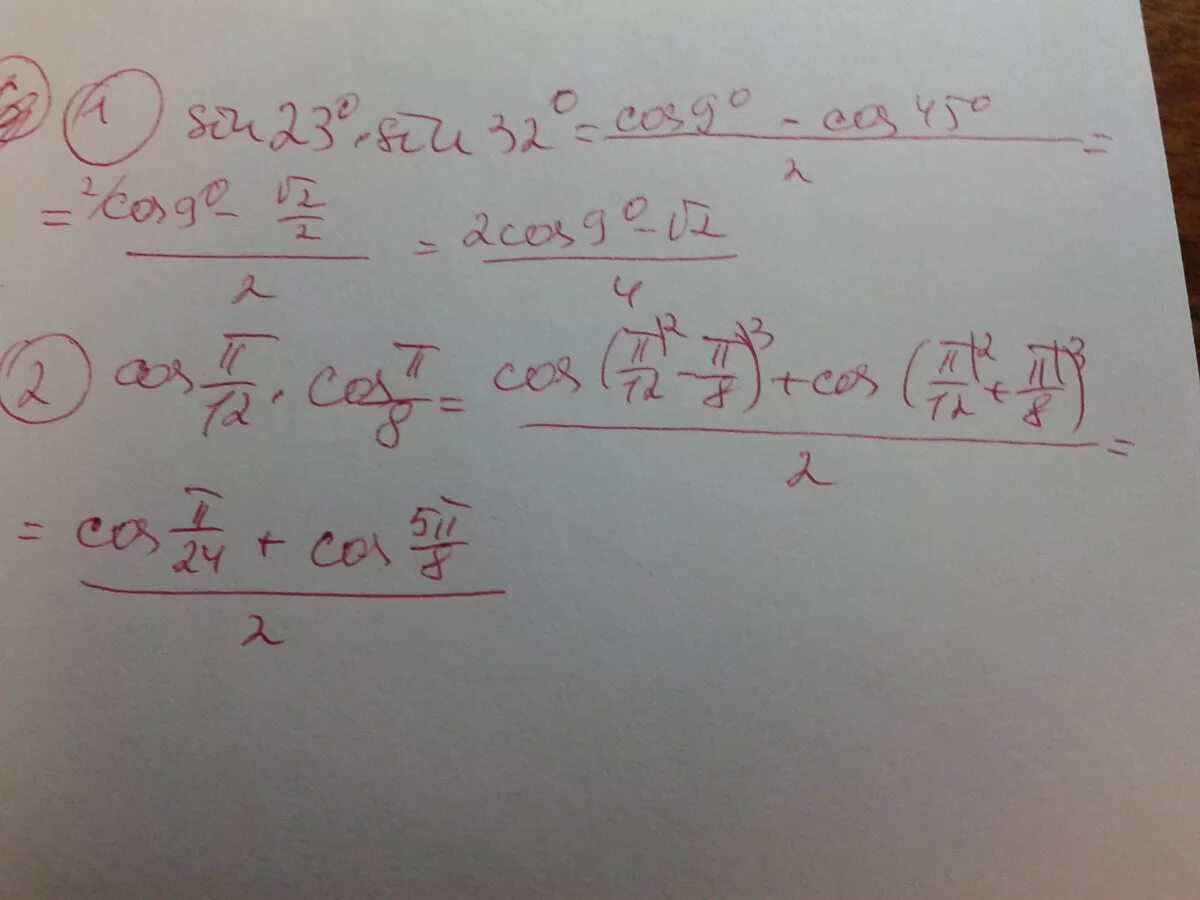 ① sin 23° · sin 32° = (cos 9° - cos 45°)/2 =
= (²⁄cos 9° - √2/2)/2 = (2cos 9° - √2)/4
② cos π/12 · cos π/8 = (cos (π|²/12 - π|³/8) + cos (π|²/12 + π|³/8))/2 =
= (cos π/24 + cos 5π/8)/2